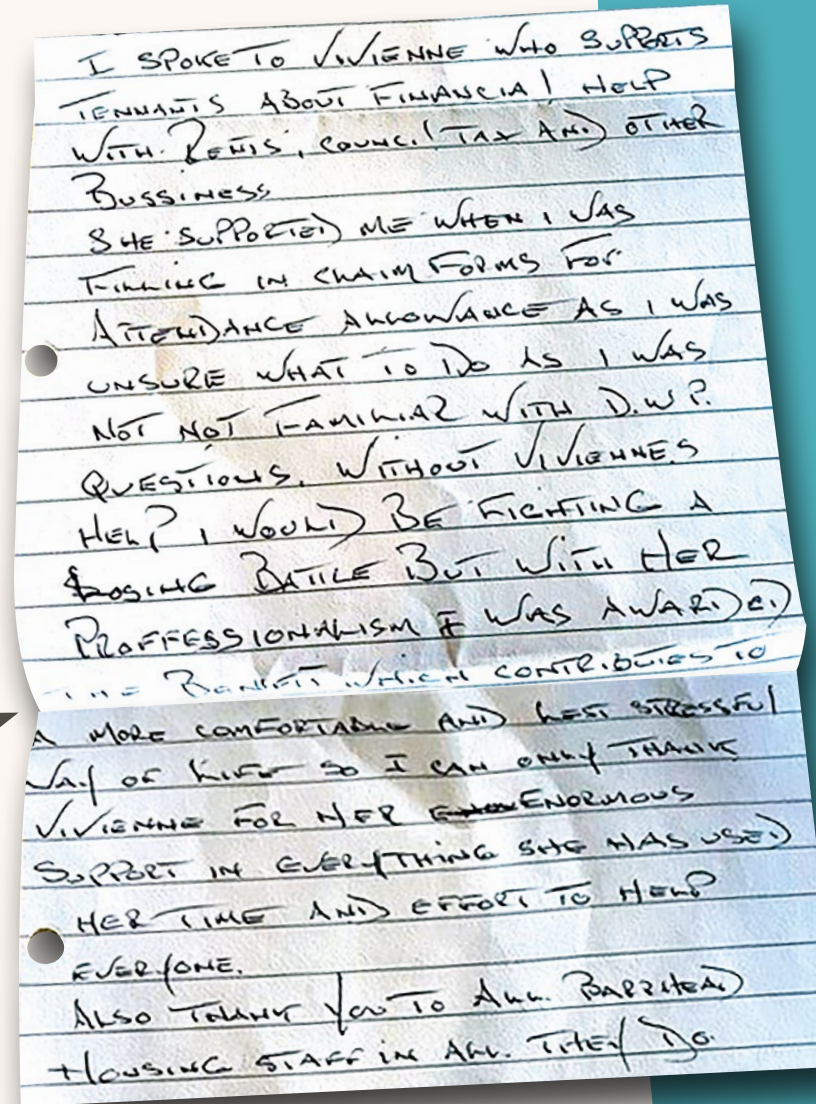 I SPOKE TO VIVIENNE WHO SUPPORTS
TENNANTS ABOUT FINANCIAL HELP
WITH RENTS, COUNCIL TAX AND OTHER
BUSSINESS
SHE SUPPORTED ME WHEN I WAS
FILLING IN CLAIM FORMS FOR
ATTENDANCE ALLOWANCE AS I WAS
UNSURE WHAT TO DO AS I WAS
NOT NOT FAMILIAR WITH D.W.P.
QUESTIONS. WITHOUT VIVIENNE,S
HELP I WOULD BE FIGHTING A
LOSING BATTLE BUT WITH HER
PROFFESSIONALISM I WAS AWARDED
THE BENIFIT WHICH CONTRIBUTES TO
A MORE COMFORTABLE AND LEST STRESSFUL
WAY OF LIFE SO I CAN ONLY THANK
VIVIENNE FOR HER ENORMOUS
SUPPORT IN EVERYTHING SHE HAS USED
HER TIME AND EFFORT TO HELP
EVERYONE.
ALSO THANK YOU TO ALL BARRHEAD
HOUSING STAFF IN ALL THEY DO.